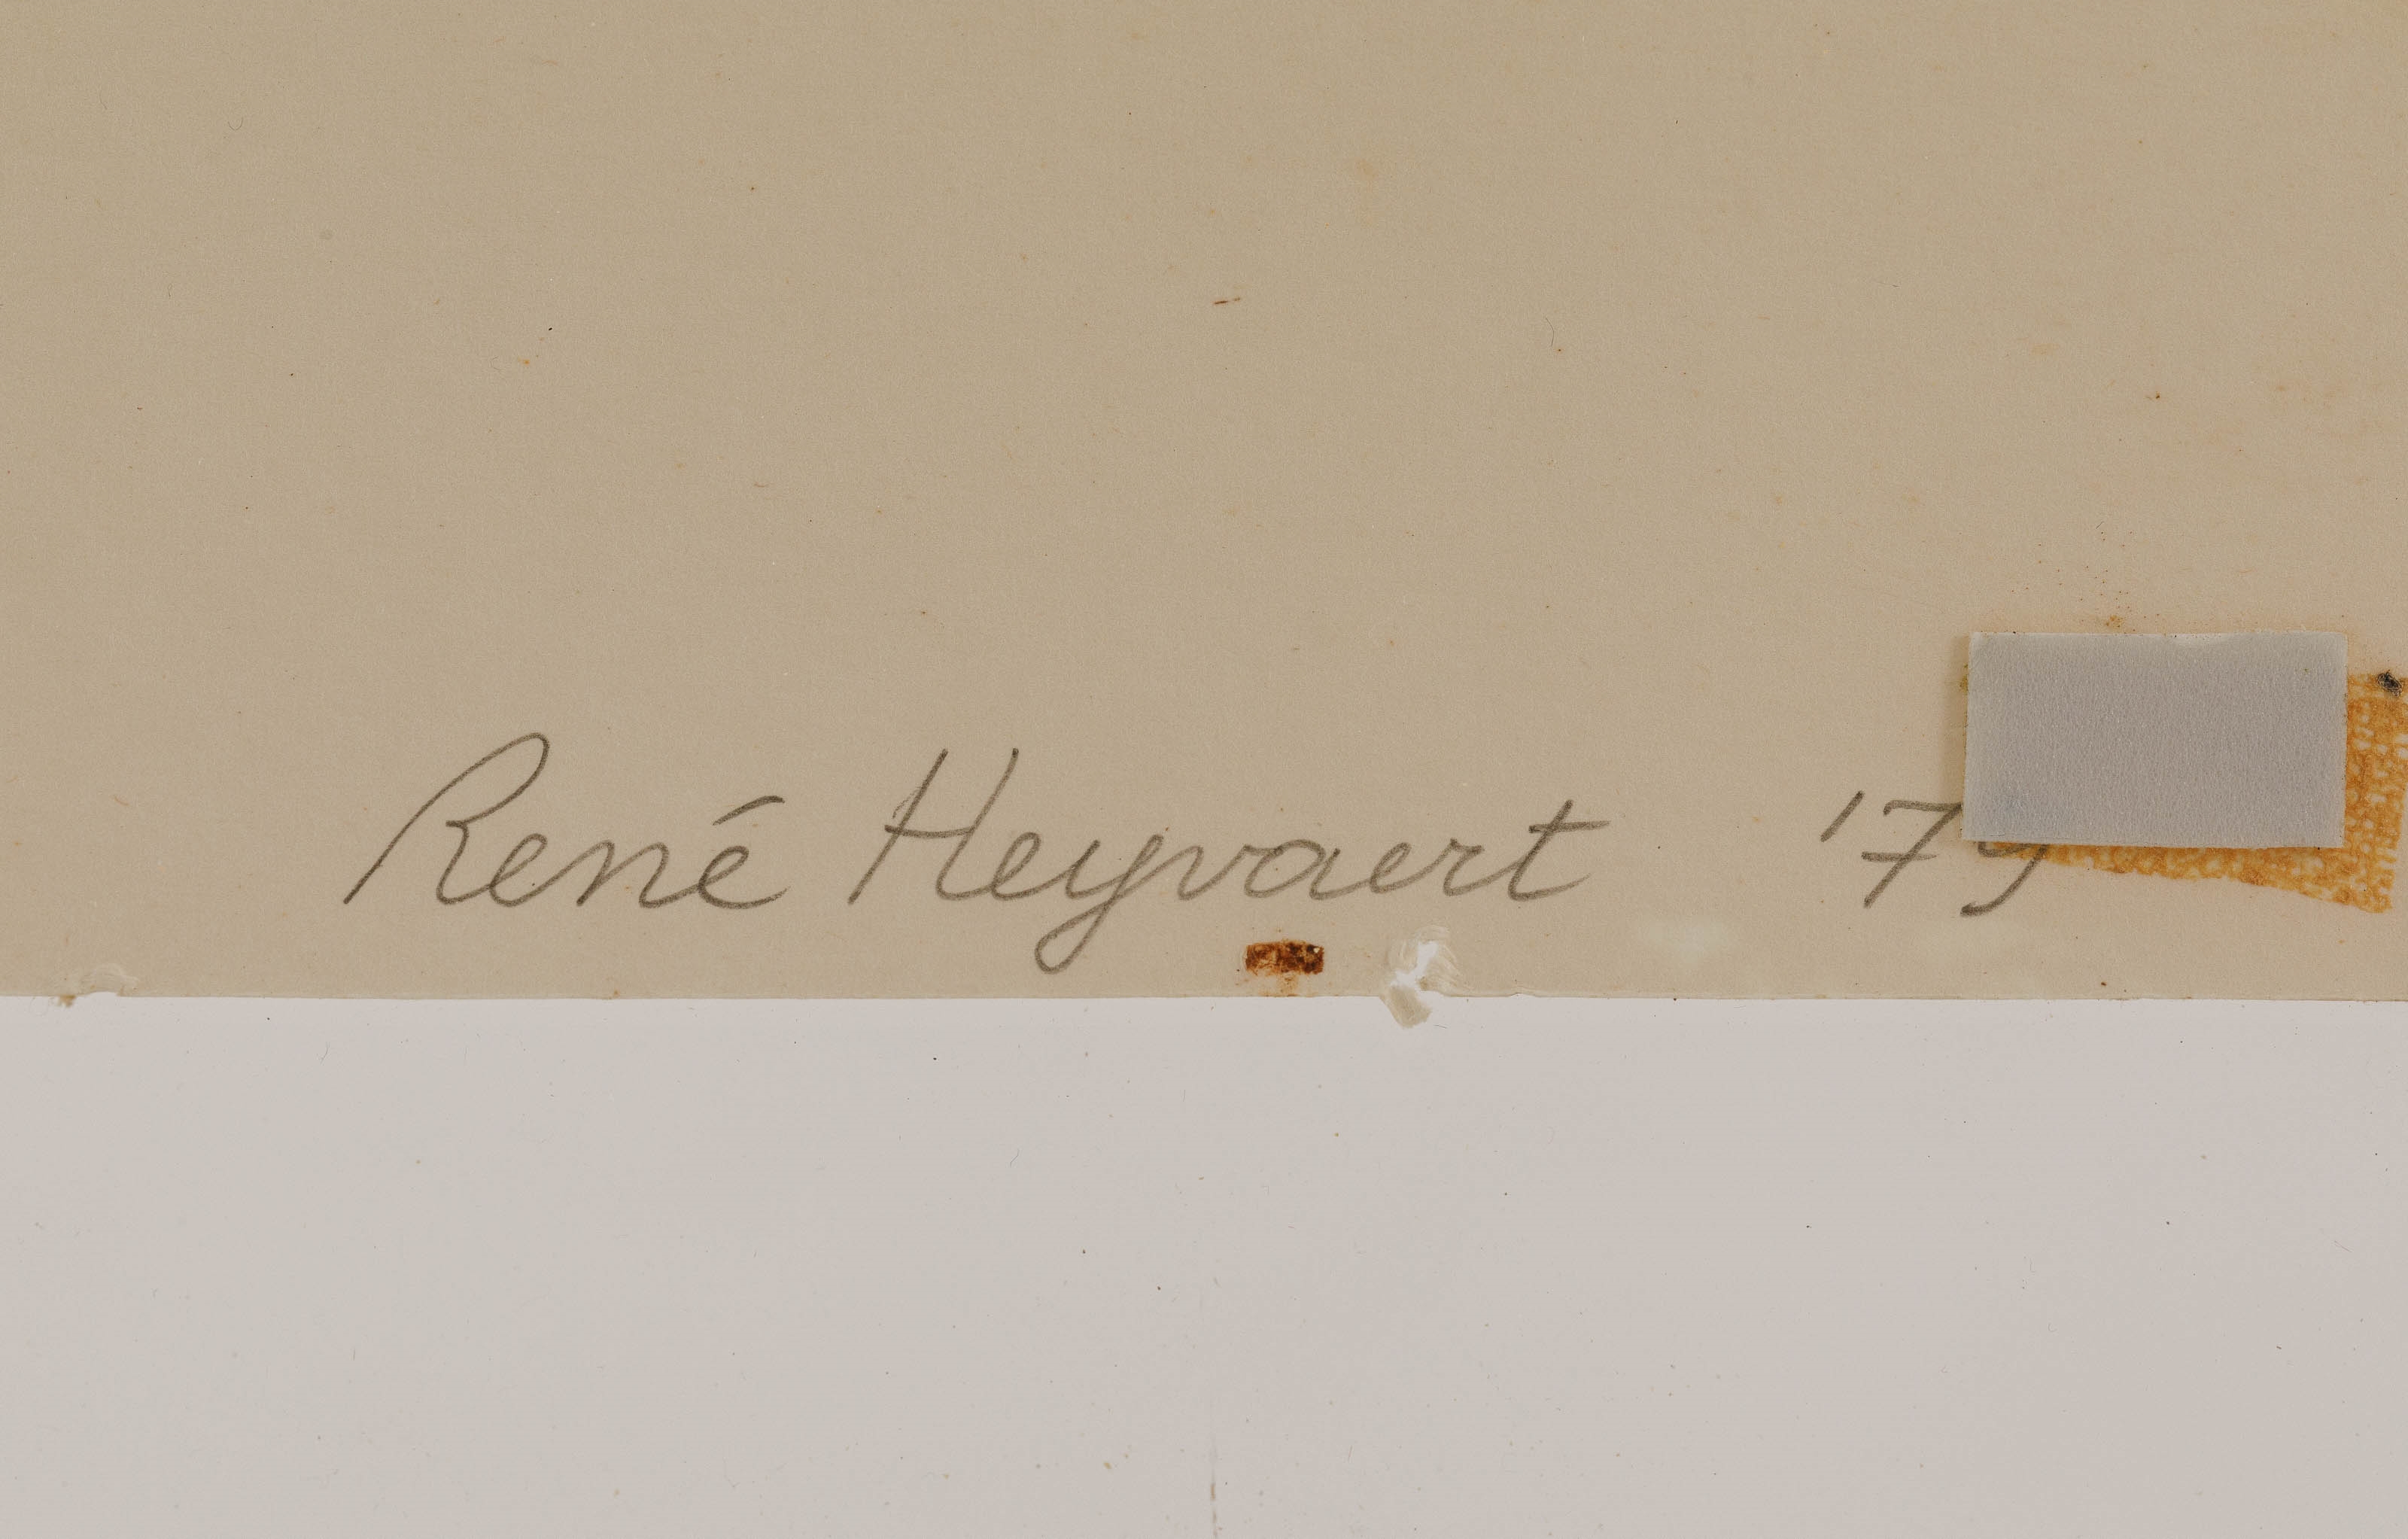 René Heyvaert '79